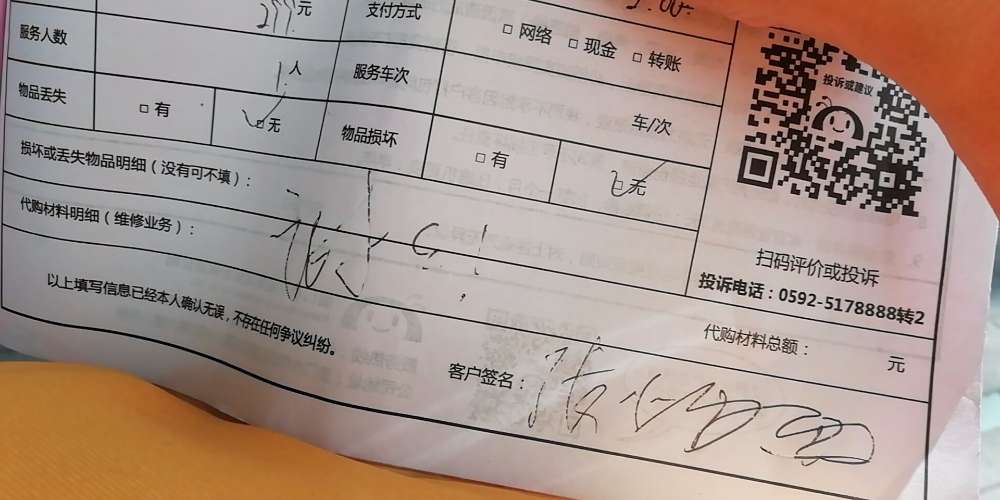 元
支付方式
□ 网络 □ 现金 □ 转账
服务人数
1人
服务车次
车/次
物品丢失
□ 有
□ 无
物品损坏
□ 有
□ 无
投诉或建议
扫码评价或投诉
投诉电话：0592-5178888转2
损坏或丢失物品明细（没有可不填）：
代购材料明细（维修业务）：
代购材料总额：
元
以上填写信息已经本人确认无误，不存在任何争议纠纷。
客户签名：